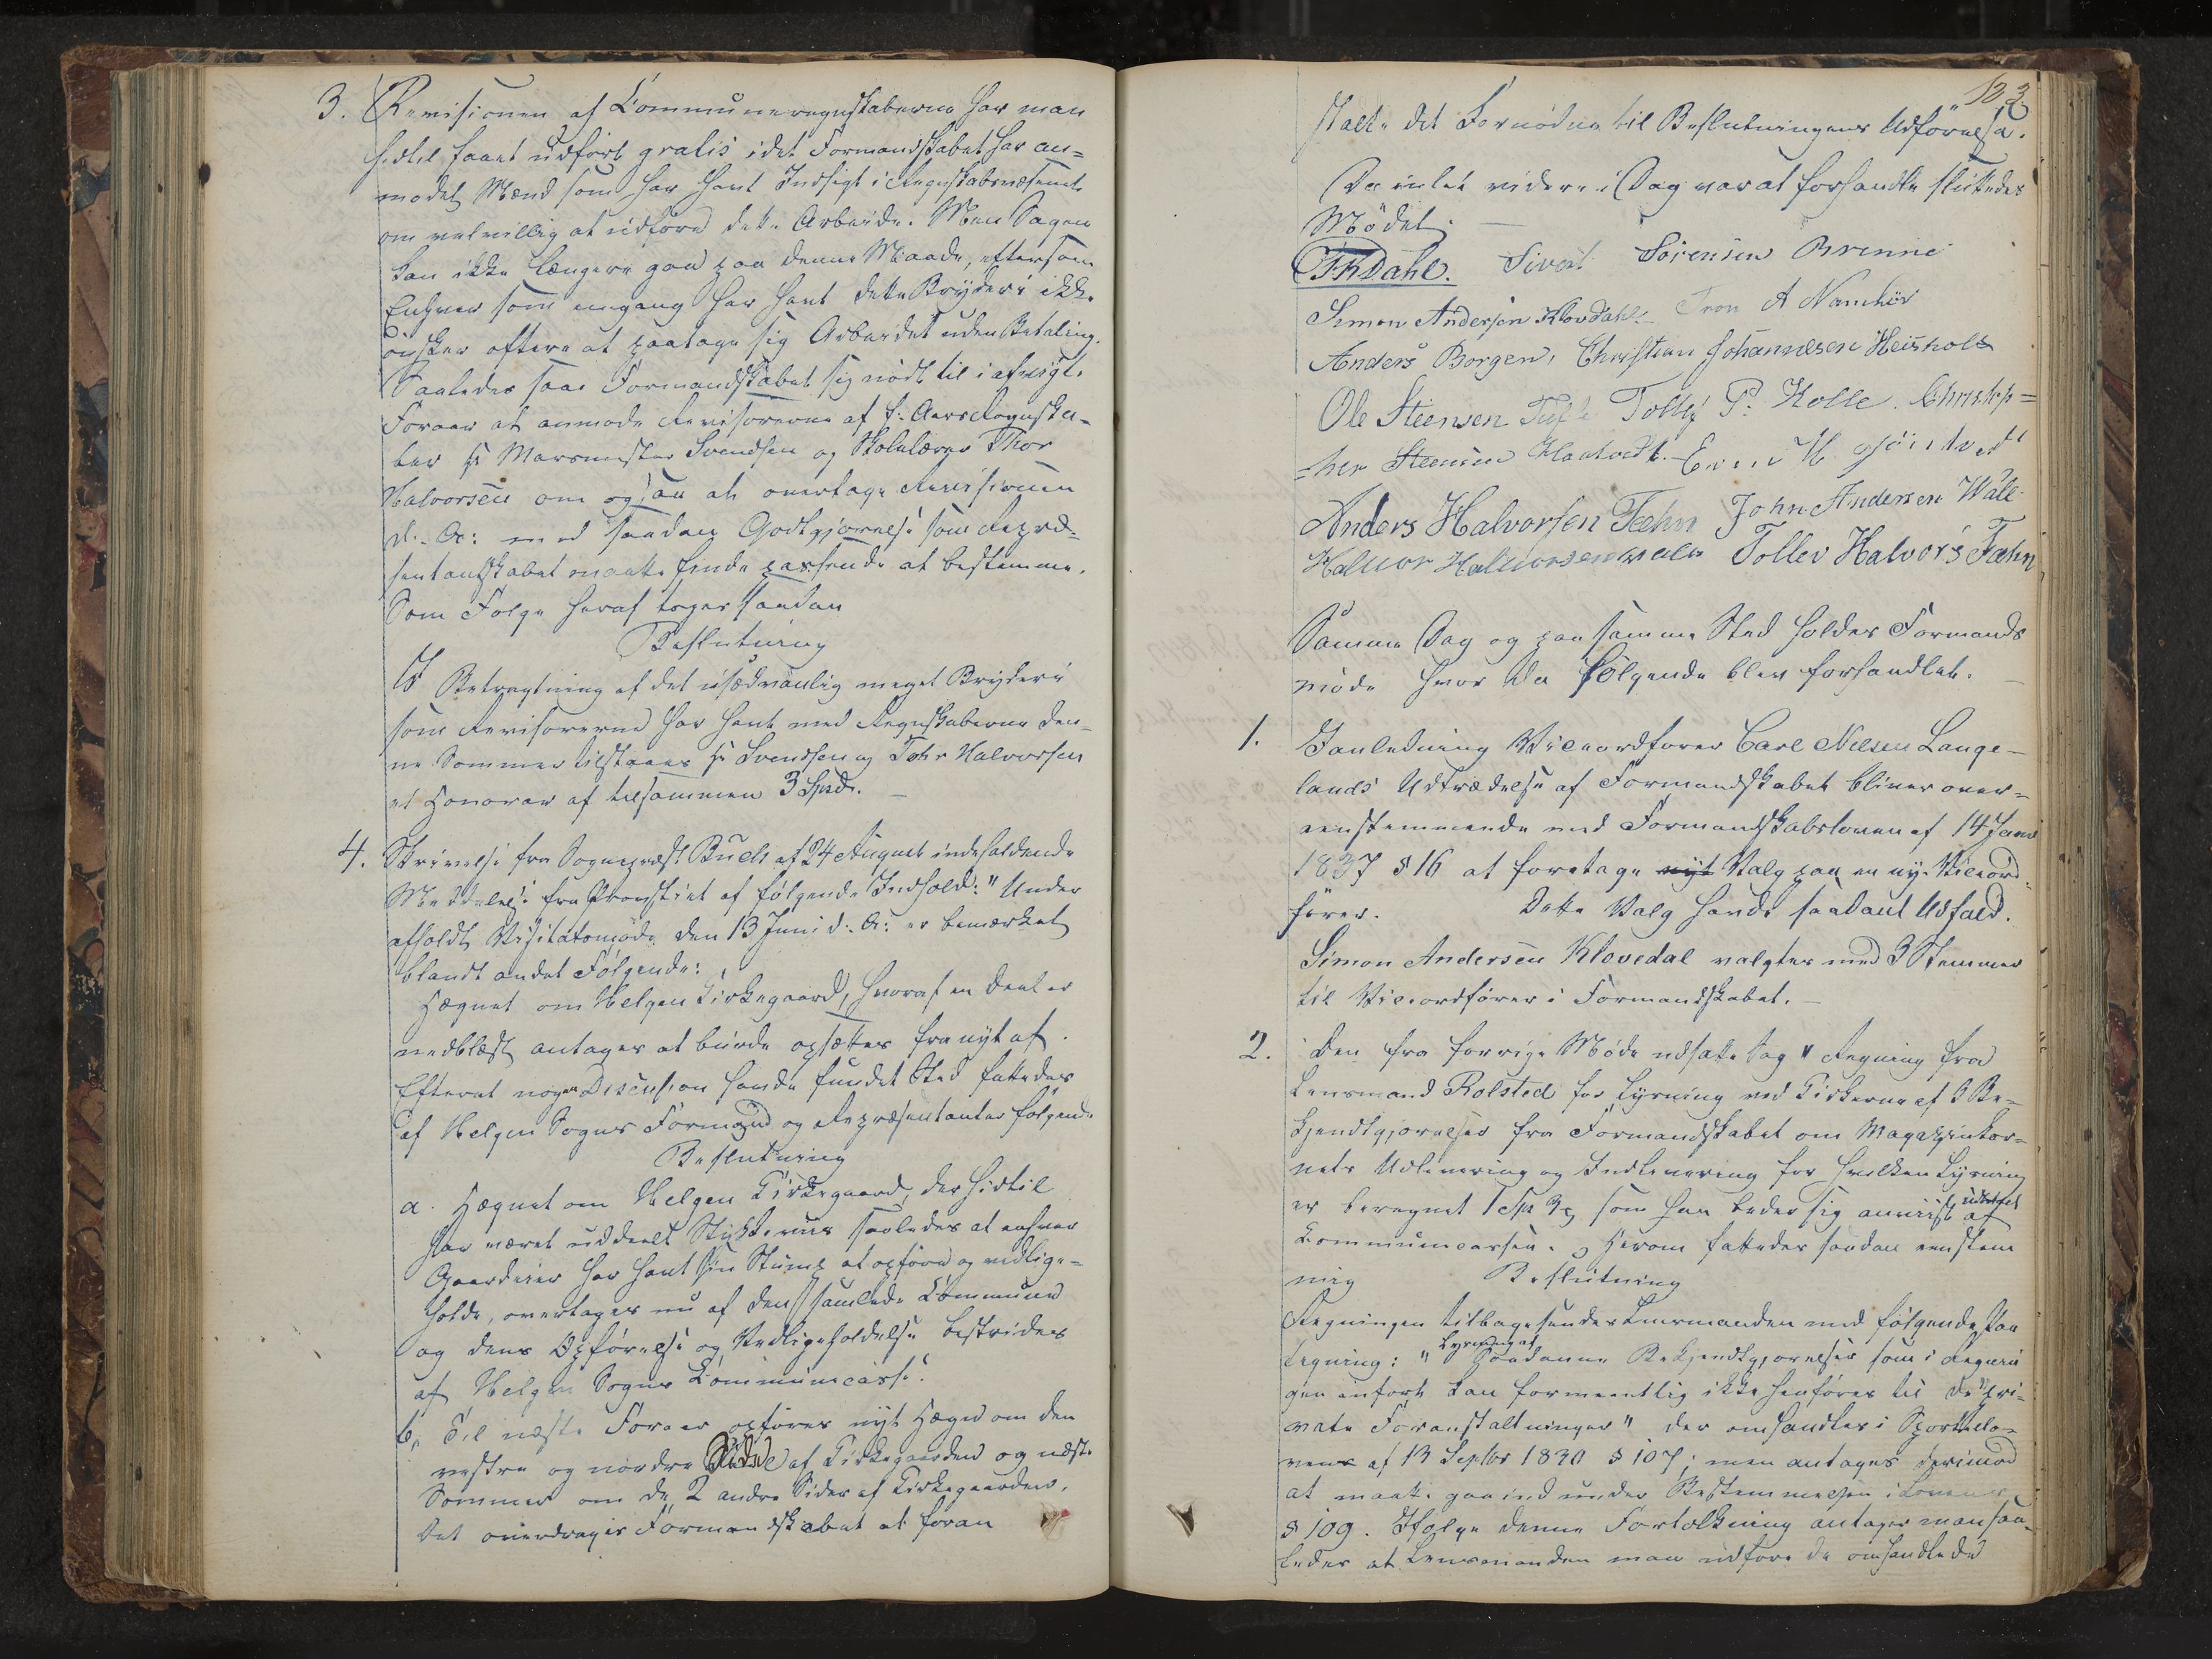 3. Revisionen af Communeregnskaberne har man
hidtil faaet udført gratis idet Formandskabet har an=
modet Mænd som har havt Indsigt i Regnskabsvæsenet
om velvillig at udføre dette Arbeide. Men Sagen
kan ikke længere gaa paa denne Maade, eftersom
Enhver som eengang har havt dette Bryderi ikke
ønsker oftere at paatage sig Arbeidet uden Betaling.
Saaledes saae Formandskabet sig nødt til i afvigte
Foraar at anmode Revisorerne af f. Aars Regnska-
ber Hr Marsmester Svendsen og Skolelærer Thor
Halvorsen om ogsaa at overtage Revisionen
d. A: mod saadan Godtgjørelse som Repræ-
sentantskabet maatte finde passende at bestemme.
Som Følge heraf toges saadan
Beslutning
I Betragtning af det usædvanlig meget Bryderi
som Revisorerne har havt med Regnskaberne den-
ne Sommer tilstaaes Hr Svendsen og Tohr Halvorsen
et Honorar af tilsammen 3 Spd. —
4. Skrivelse fra Sognepræst Buch af 24 August indeholdende
Meddelelse fra Provstiet af følgende Indhold: "Under
afholdt Visitatsmøde den 13 Juni d. A: er bemærket
blandt andet Følgende:
Hegnet om Helgen Kirkegaard, hvoraf en Deel er
nedblæst antages at burde opsættes fra nyt af.
Efterat nogen Discusion havde fundet Sted fattedes
af Helgen Sogns Formænd og Repræsentanter følgende
Beslutning
a. Hegnet om Helgen Kirkegaard, der hidtil
har været uddeelt Stykkeviis saaledes at enhver
Gaardeier har havt sin Stump at opføre og vedlige=
holde, overtages nu af den samlede Commune
og dens Opførelse og Vedligeholdelse bestrides
af Helgen Sogns Communecasse.
b, Til næste Foraar opføres nyt Hegn om den
vestre og nordre Side af Kirkegaarden og næste
Sommer om de 2 andre Sider af Kirkegaarden.
Det overdrages Formandskabet at foran
123
stalte det Fornødne til Beslutningens Udførelse.
Da intet videre i Dag var at forhandle sluttedes
Mødet. —
Dahl. Sivert Sørensen Brenne
Simon Andersen Klovdahl. Tron A Namløs
Anders Borgen, Christian Johannesen Heisholt
Ole Steensen Tufte Tollef P. Kolle. Christop=
=her Steensen
Anders Halvorsen Tæhn John Andersen Wale
Halvor Halvorsen Wala Tollev Halvors Tæhn
Samme Dag og paa samme Sted holdes Formands
møde hvor da følgende blev forhandlet. —
1. I Anledning Viceordfører Carl Nilsen Lange-
lands Udtrædelse af Formandskabet bliver over=
eenstemmende med Formandskabsloven af 14 Janr
1837 § 16 at foretage nyt Valg paa en ny Viceord-
fører. Dette Valg havde saadant Udfald.
Simon Andersen Klovedal valgtes med 3 Stemmer
til Viceordfører i Formandskabet. —
2. Den fra forrige Møde udsatte Sag "Regning fra
Lensmand Rolsted for Lysning ved Kirkerne af 6 Be-
kjendtgjørelser fra Formandskabet om Magazinkor-
nets Udlevering og Indlevering for hvilken Lysning
er beregnet 1 Spd som han beder sig anviist udbetalt af
Communecassen. Herom fattedes saadan eenstem
mig Beslutning
Regningen tilbagesendes Lensmanden med følgende Paa
tegning: "Lysning af Saadanne Bekjendtgjørelser som i Regnin
gen anført kan formeentlig ikke henføres til de "pri-
vate Foranstaltninger" der omhandles i Sportello-
vens af 13 Septbr 1830 § 107; men antages derimod
at maatte gaa ind under Bestemmelsen i Lovens
§ 109. Ifølge denne Fortolkning antager man saa-
ledes at Lensmanden maa udføre de omhandlede